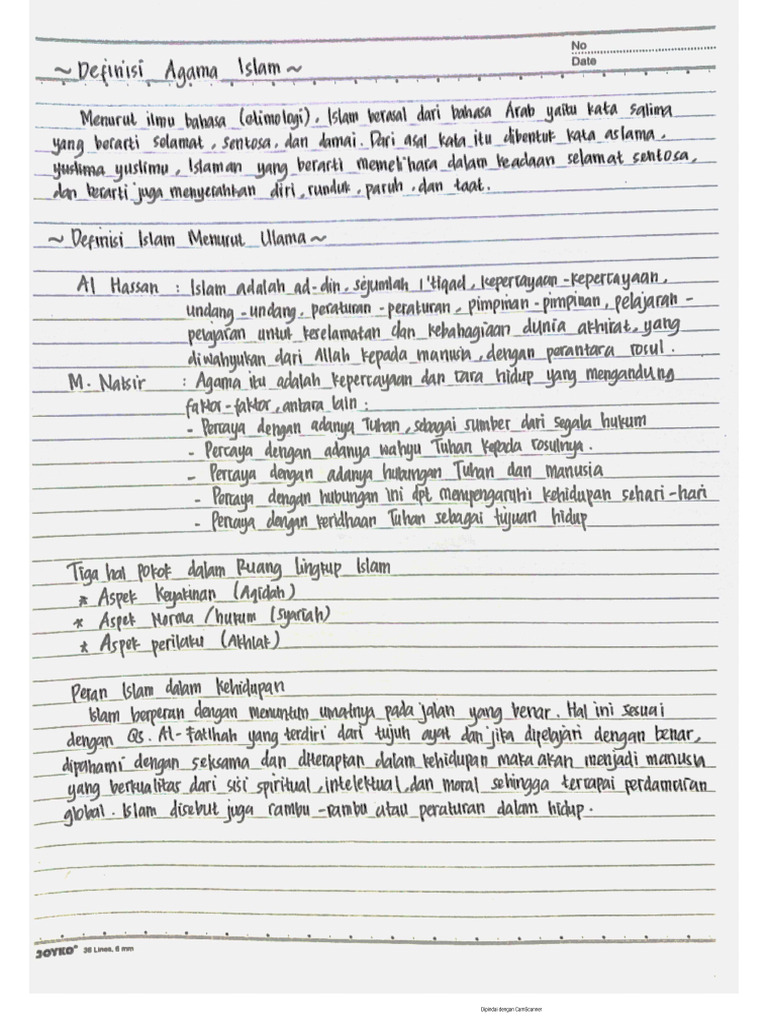 No
Date
~ Definisi Agama Islam ~
Menurut ilmu bahasa (etimologi), Islam berasal dari bahasa Arab yaitu kata salima
yang berarti selamat, sentosa, dan damai. Dari asal kata itu dibentuk kata aslama,
yuslima yuslimu, Islaman yang berarti memelihara dalam keadaan selamat sentosa,
dan berarti juga menyerahkan diri, runduk, paruh, dan taat.
~ Definisi Islam Menurut Ulama ~
Al Hassan : Islam adalah ad-din, sejumlah I'tiqad, kepercayaan-kepercayaan,
undang-undang, peraturan-peraturan, pimpinan-pimpinan, pelajaran-
pelajaran untuk keselamatan dan kebahagiaan dunia akhirat, yang
diwahyukan dari Allah kepada manusia, dengan perantara rosul.
M. Natsir : Agama itu adalah kepercayaan dan cara hidup yang mengandung
faktor-faktor, antara lain :
- Percaya dengan adanya Tuhan, sebagai sumber dari segala hukum
- Percaya dengan adanya wahyu Tuhan kepada rosulnya.
- Percaya dengan adanya hubungan Tuhan dan manusia
- Percaya dengan hubungan ini dpt mempengaruhi kehidupan sehari-hari
- Percaya dengan keridhaan Tuhan sebagai tujuan hidup
Tiga hal pokok dalam Ruang lingkup Islam
* Aspek Keyakinan (Aqidah)
* Aspek Norma / hukum (Syariah)
* Aspek perilaku (Akhlak)
Peran Islam dalam kehidupan
Islam berperan dengan menuntun umatnya pada jalan yang benar. Hal ini sesuai
dengan Qs. Al-Fatihah yang terdiri dari tujuh ayat dan jika dipelajari dengan benar,
dipahami dengan seksama dan diterapkan dalam kehidupan maka akan menjadi manusia
yang berkualitas dari sisi spiritual, intelektual, dan moral sehingga tercapai perdamaian
global. Islam disebut juga rambu-rambu atau peraturan dalam hidup.
JOYKO 36 Lines, 6 mm
Dipindai dengan CamScanner